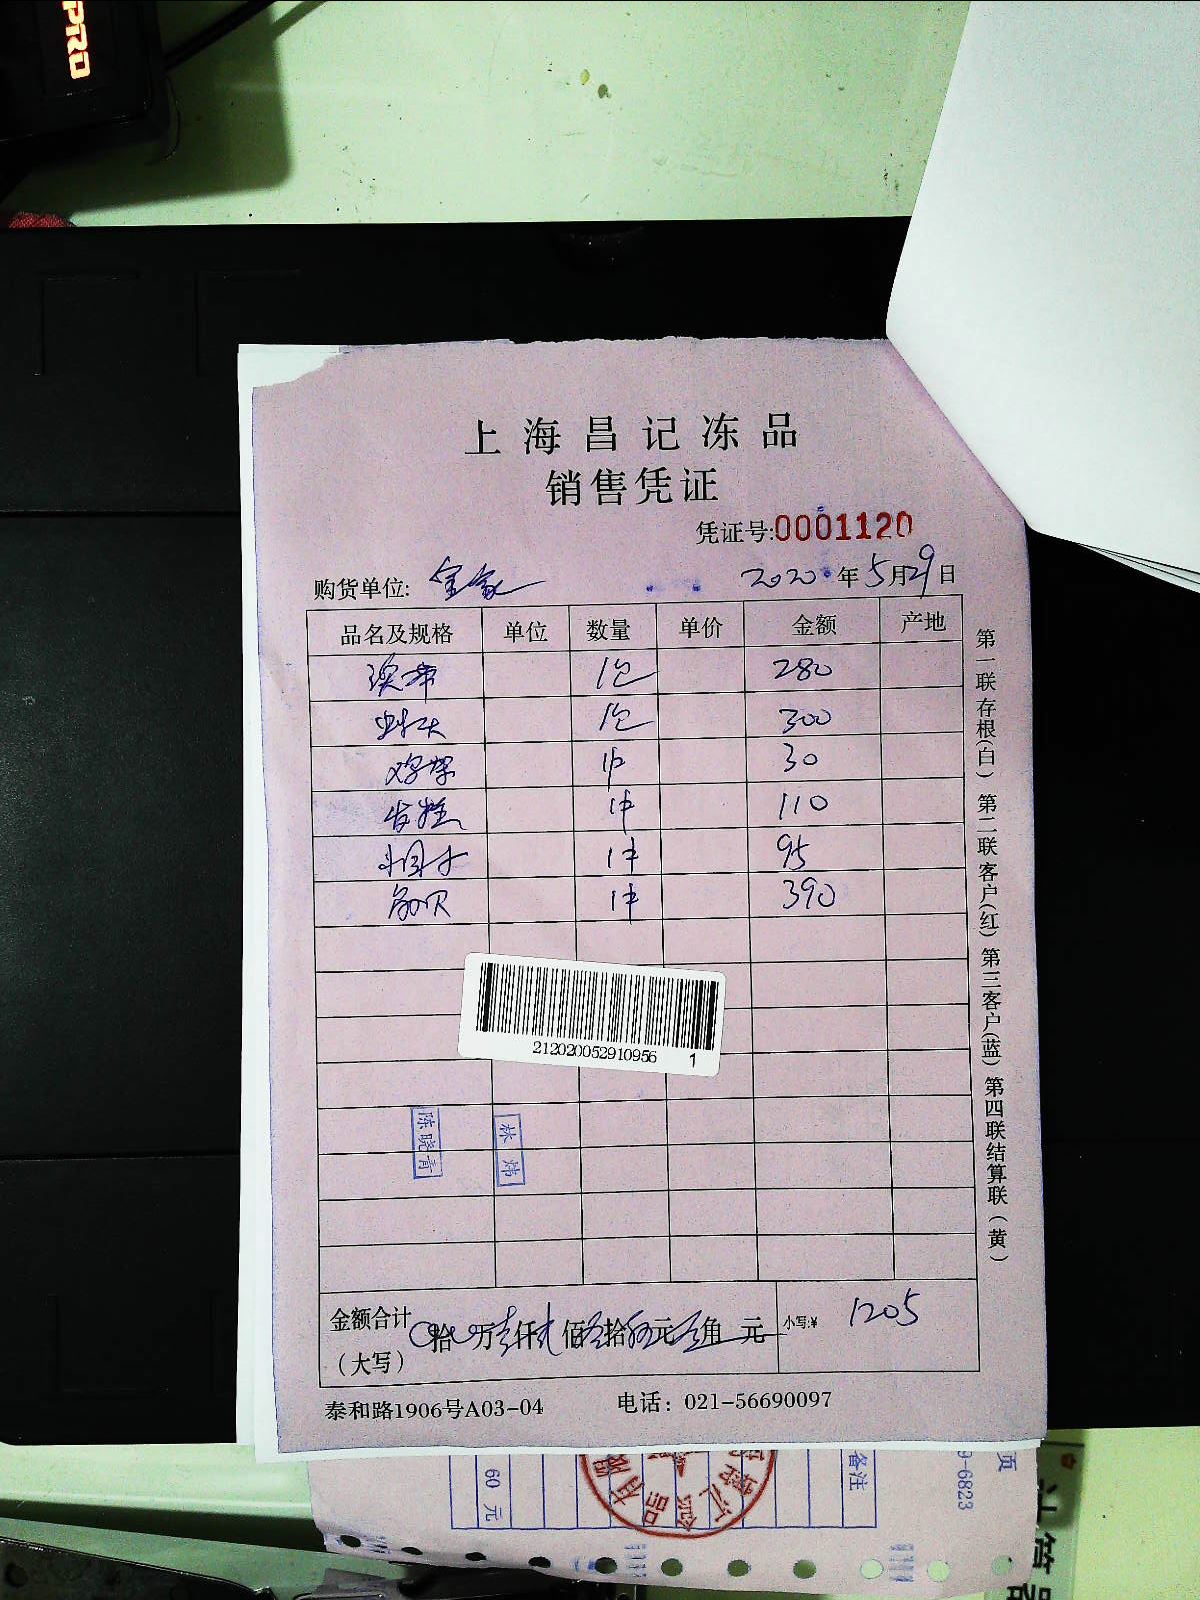 PRO
上海昌记冻品
销售凭证
凭证号:0001120
购货单位: 2020年5月29日
品名及规格 单位 数量 单价 金额 产地
1包 280
虾仁 1包 300
鸡架 1件 30
1件 110
1件 95
扇贝 1件 390
212020052910956 1
陈晓青
林炜
金额合计
(大写) 拾 万壹仟贰佰零拾伍元零角 元 小写:¥ 1205
泰和路1906号A03-04 电话: 021-56690097
第一联存根(白) 第二联客户(红) 第三客户(蓝) 第四联结算联(黄)
60 元
备注
9-6823
页